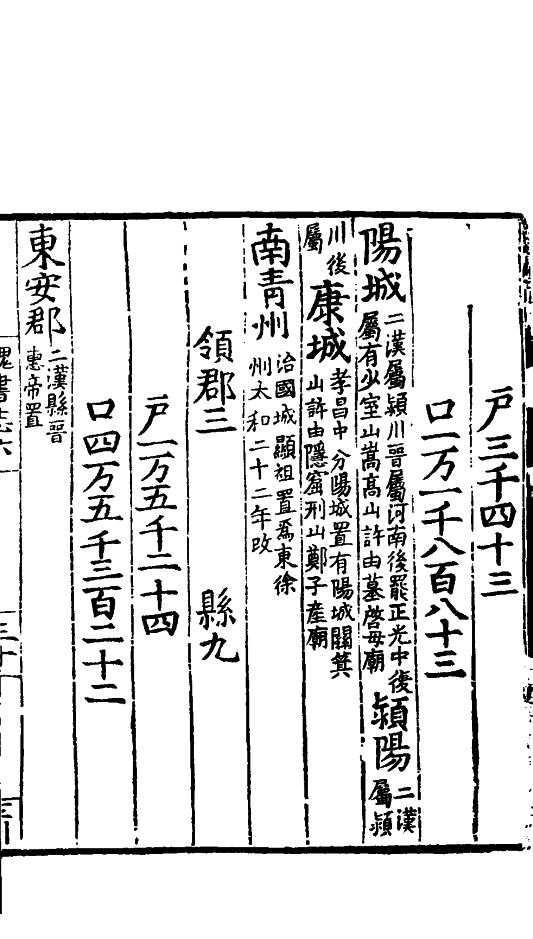 戶三千四十三
口一万一千八百八十三
陽城二漢屬潁川晉屬河南後罷正光中後屬有少室山嵩高山許由墓啓母廟潁陽二漢屬潁
川後屬康城孝昌中分陽城置有陽城關箕山許由隱窟刑山鄭子產廟
南青州治國城顯祖置爲東徐州太和二十二年改
領郡三 縣九
戶一万五千二十四
口四万五千三百二十二
東安郡二漢縣晉惠帝置
魏書志六